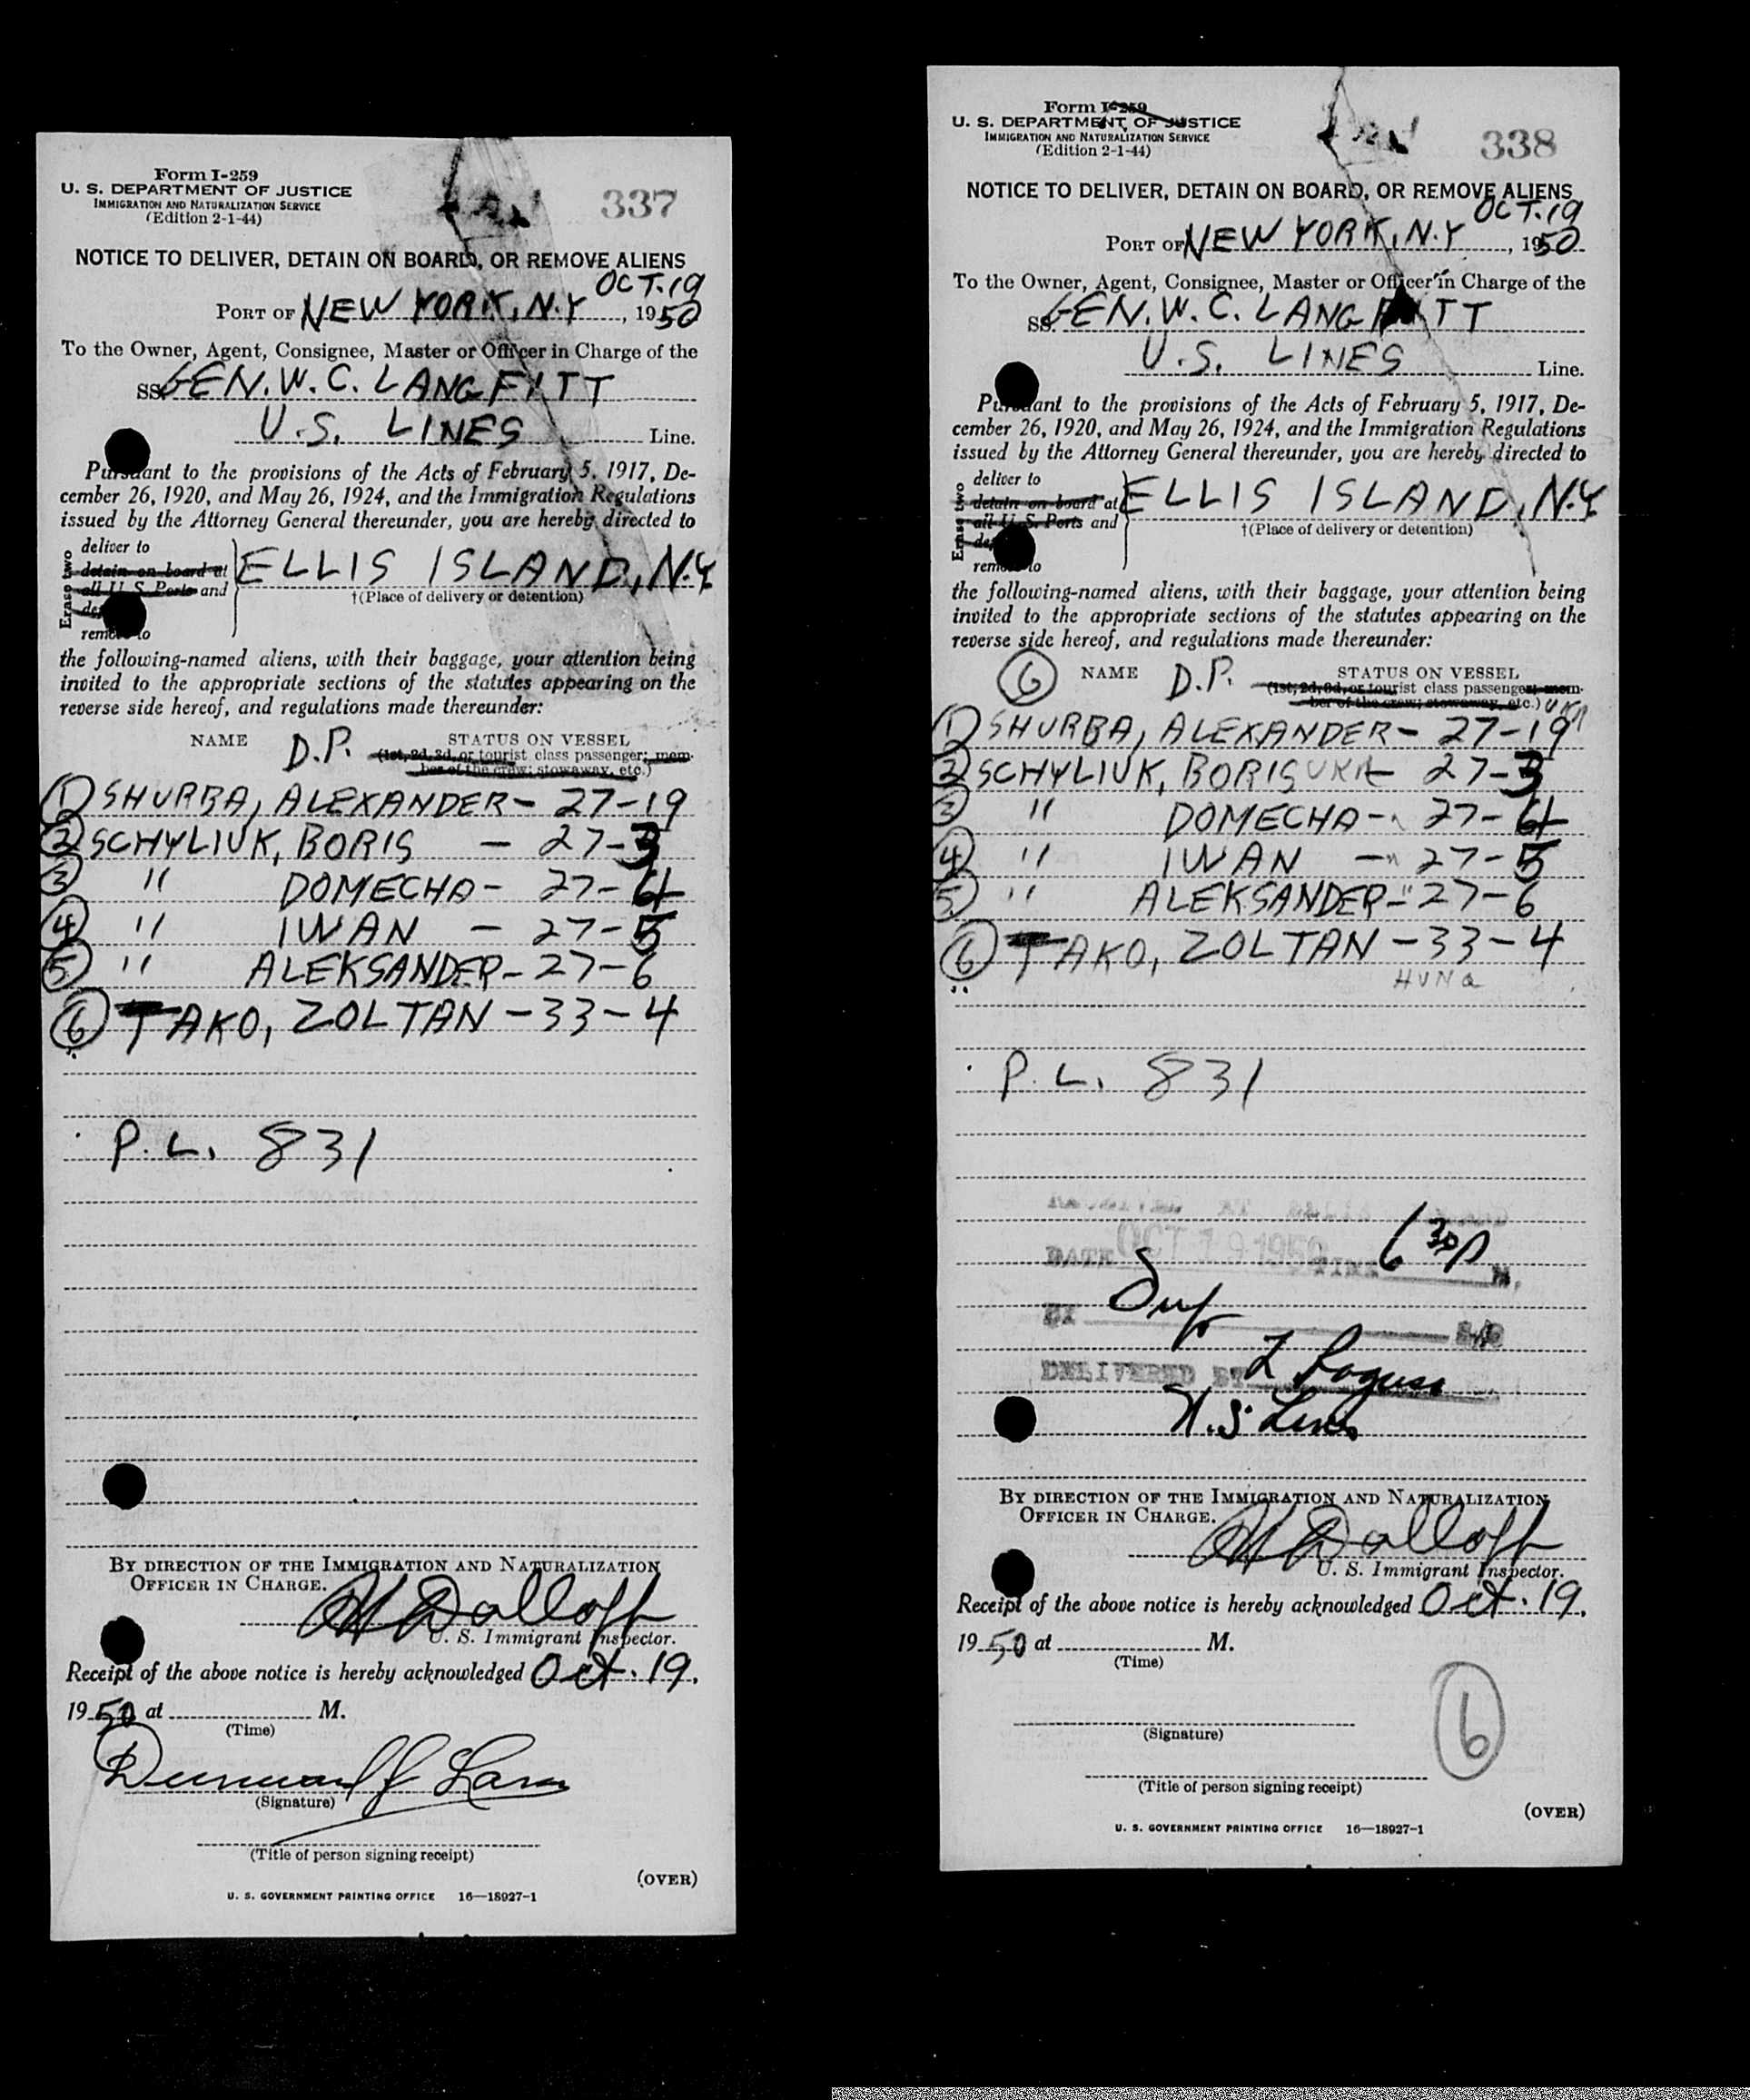 Form I-259
U. S. DEPARTMENT OF JUSTICE
IMMIGRATION AND NATURALIZATION SERVICE
(Edition 2-1-44)
337
NOTICE TO DELIVER, DETAIN ON BOARD, OR REMOVE ALIENS
OCT. 19
PORT OF NEW YORK, N.Y , 1950
To the Owner, Agent, Consignee, Master or Officer in Charge of the
SS GEN. W. C. LANGFITT
U.S. LINES Line.
Pursuant to the provisions of the Acts of February 5, 1917, De-
cember 26, 1920, and May 26, 1924, and the Immigration Regulations
issued by the Attorney General thereunder, you are hereby directed to
Erase two
deliver to
detain on board at
all U. S. Ports and
remove to
ELLIS ISLAND, N.Y
†(Place of delivery or detention)
the following-named aliens, with their baggage, your attention being
invited to the appropriate sections of the statutes appearing on the
reverse side hereof, and regulations made thereunder:
NAME D.P. STATUS ON VESSEL
(1st, 2d, 3d, or tourist class passenger; mem-
ber of the crew; stowaway, etc.)
① SHURBA, ALEXANDER - 27-19
② SCHYLIUK, BORIS - 27-3
③ " DOMECHA - 27-4
④ " IWAN - 27-5
⑤ " ALEKSANDER - 27-6
⑥ TAKO, ZOLTAN - 33-4
P.L. 831
BY DIRECTION OF THE IMMIGRATION AND NATURALIZATION
OFFICER IN CHARGE.
U. S. Immigrant Inspector.
Receipt of the above notice is hereby acknowledged Oct. 19,
1950 at M.
(Time)
(Signature)
(Title of person signing receipt)
(OVER)
U. S. GOVERNMENT PRINTING OFFICE 16—18927-1
Form I-259
U. S. DEPARTMENT OF JUSTICE
IMMIGRATION AND NATURALIZATION SERVICE
(Edition 2-1-44)
338
NOTICE TO DELIVER, DETAIN ON BOARD, OR REMOVE ALIENS
OCT. 19
PORT OF NEW YORK, N.Y , 1950
To the Owner, Agent, Consignee, Master or Officer in Charge of the
SS GEN. W. C. LANGFITT
U.S. LINES Line.
Pursuant to the provisions of the Acts of February 5, 1917, De-
cember 26, 1920, and May 26, 1924, and the Immigration Regulations
issued by the Attorney General thereunder, you are hereby directed to
Erase two
deliver to
detain on board at
all U. S. Ports and
remove to
ELLIS ISLAND, N.Y
†(Place of delivery or detention)
the following-named aliens, with their baggage, your attention being
invited to the appropriate sections of the statutes appearing on the
reverse side hereof, and regulations made thereunder:
⑥ NAME D.P. STATUS ON VESSEL
(1st, 2d, 3d, or tourist class passenger; mem-
ber of the crew; stowaway, etc.) UKR
① SHURBA, ALEXANDER - 27-19
② SCHYLIUK, BORIS UKR - 27-3
③ " DOMECHA - " 27-4
④ " IWAN - " 27-5
⑤ " ALEKSANDER - " 27-6
⑥ TAKO, ZOLTAN - 33-4
HUNG
P.L. 831
DATE OCT 19 1950 TIME 6 30 P M.
BY
DELIVERED BY
U.S. Lines
BY DIRECTION OF THE IMMIGRATION AND NATURALIZATION
OFFICER IN CHARGE.
U. S. Immigrant Inspector.
Receipt of the above notice is hereby acknowledged Oct. 19,
1950 at M.
(Time)
⑥
(Signature)
(Title of person signing receipt)
(OVER)
U. S. GOVERNMENT PRINTING OFFICE 16—18927-1